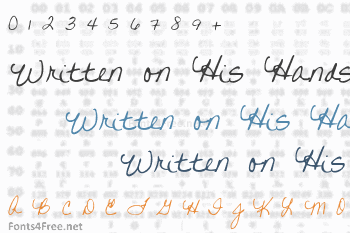 0 1 2 3 4 5 6 7 8 9 +
Written on His Hands
Written on His Ha
Written on His
a B C D E F G H I J K L M O
Fonts4Free.net